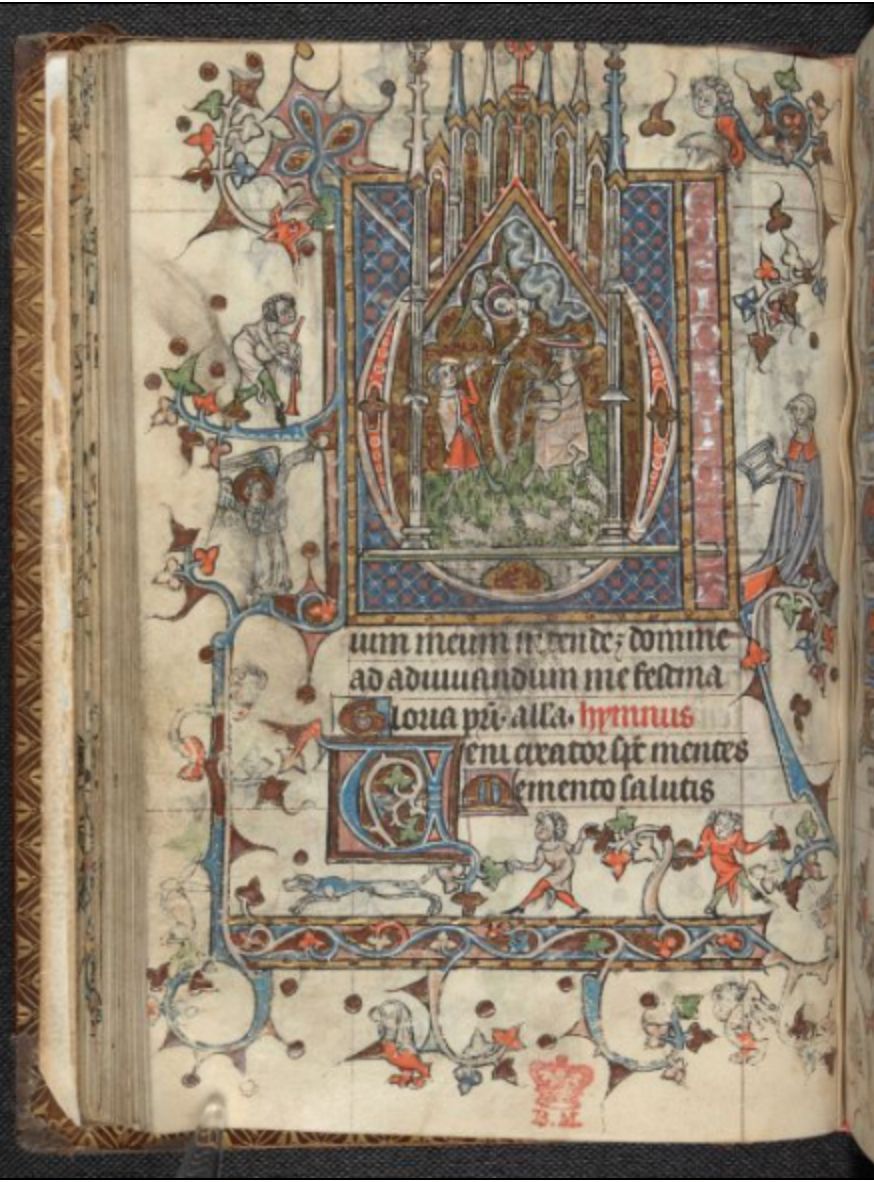 ium meum intende; domine
ad adiuuandum me festina
Gloria pri· alla· hymnus
Veni creator spc mentes
Memento salutis
B. M.